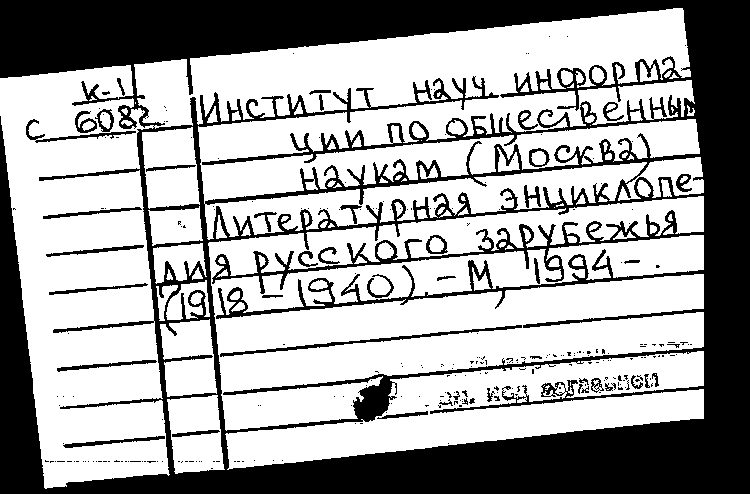 К-1
с 6082
Институт науч. информа-
ции по общественным
наукам (Москва)
Литературная энциклопе-
дия русского зарубежья
(1918-1940). - М, 1994-.